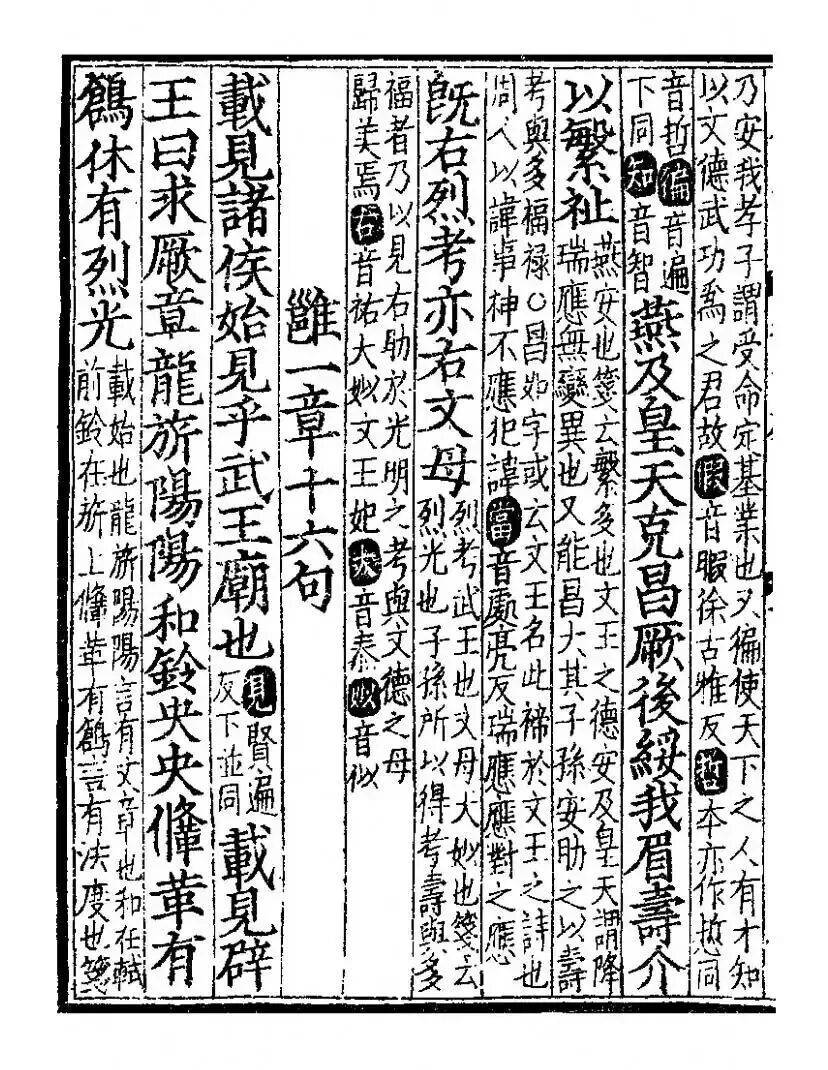 乃安我孝子謂受命定基業也又徧使天下之人有才知
以文德武功爲之君故假音暇徐古雅反哲本亦作悊同
音哲徧音遍
下同知音智
燕及皇天克昌厥後綏我眉壽介
以繁祉
燕安也箋云繁多也文王之德安及皇天謂降
瑞應無變異也又能昌大其子孫安助之以壽
考與多福禄○昌如字或云文王名此禘於文王之詩也
周人以諱事神不應犯諱當音處亮反瑞應應對之應
既右烈考亦右文母
烈考武王也文母大姒也箋云
烈光也子孫所以得考壽與多
福者乃以見右助於光明之考與文德之母
歸美焉右音祐大姒文王妃大音泰姒音似
雝一章十六句
載見諸侯始見乎武王廟也
見賢遍
反下並同
載見辟
王曰求厥章龍旂陽陽和鈴央央鞗革有
鶬休有烈光
載始也龍旂陽陽言有文章也和在軾
前鈴在旂上鞗革有鶬言有法度也箋